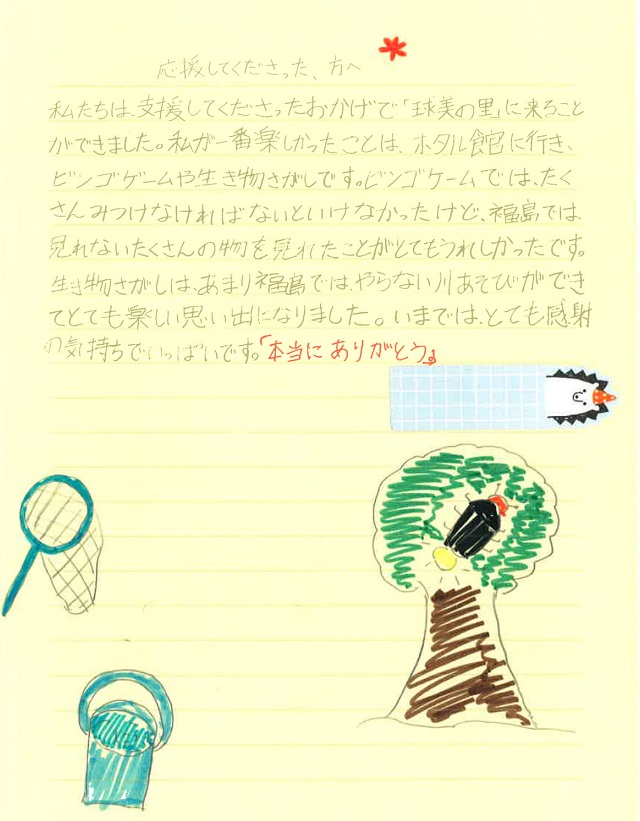 応援してくださった、方へ
私たちは、支援してくださったおかげで「球美の里」に来ること
ができました。私が一番楽しかったことは、ホタル館に行き、
ビンゴゲームや生き物さがしです。ビンゴゲームでは、たく
さんみつけなければないといけなかったけど、福島では、
見れないたくさんの物を見れたことがとてもうれしかったです。
生き物さがしは、あまり福島では、やらない川あそびができ
てとても楽しい思い出になりました。いまでは、とても感射
の気持ちでいっぱいです。「本当に ありがとう」。